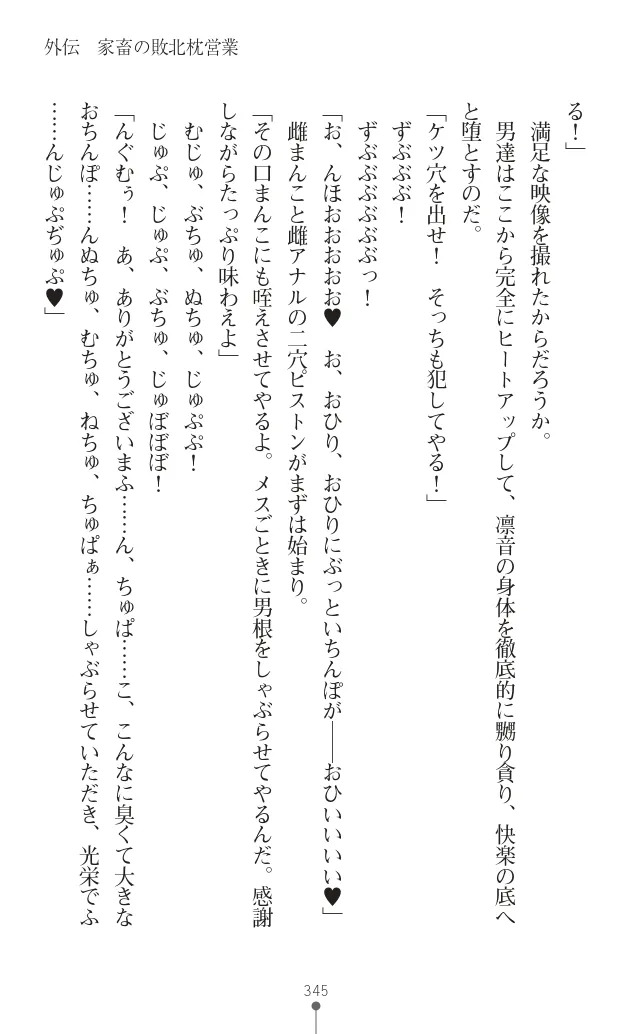 外伝　家畜の敗北枕営業
る！」
　満足な映像を撮れたからだろうか。
　男達はここから完全にヒートアップして、凛音の身体を徹底的に嬲り貪り、快楽の底へ
と堕とすのだ。
「ケツ穴を出せ！　そっちも犯してやる！」
　ずぶぶぶ！
　ずぶぶぶぶぶぶっ！
「お、んほおおおおお♥　お、おひり、おひりにぶっといちんぽが――おひいいいい♥」
　雌まんこと雌アナルの二穴ピストンがまずは始まり。
「その口まんこにも咥えさせてやるよ。メスごときに男根をしゃぶらせてやるんだ。感謝
しながらたっぷり味わえよ」
　むじゅ、ぶちゅ、ぬちゅ、じゅぷぷ！
　じゅぷ、じゅぷ、ぶちゅ、じゅぼぼぼ！
「んぐむぅ！　あ、ありがとうございまふ……ん、ちゅぱ……こ、こんなに臭くて大きな
おちんぽ……んぬちゅ、むちゅ、ねちゅ、ちゅぱぁ……しゃぶらせていただき、光栄でふ
……んじゅぷぢゅぷ♥」
345